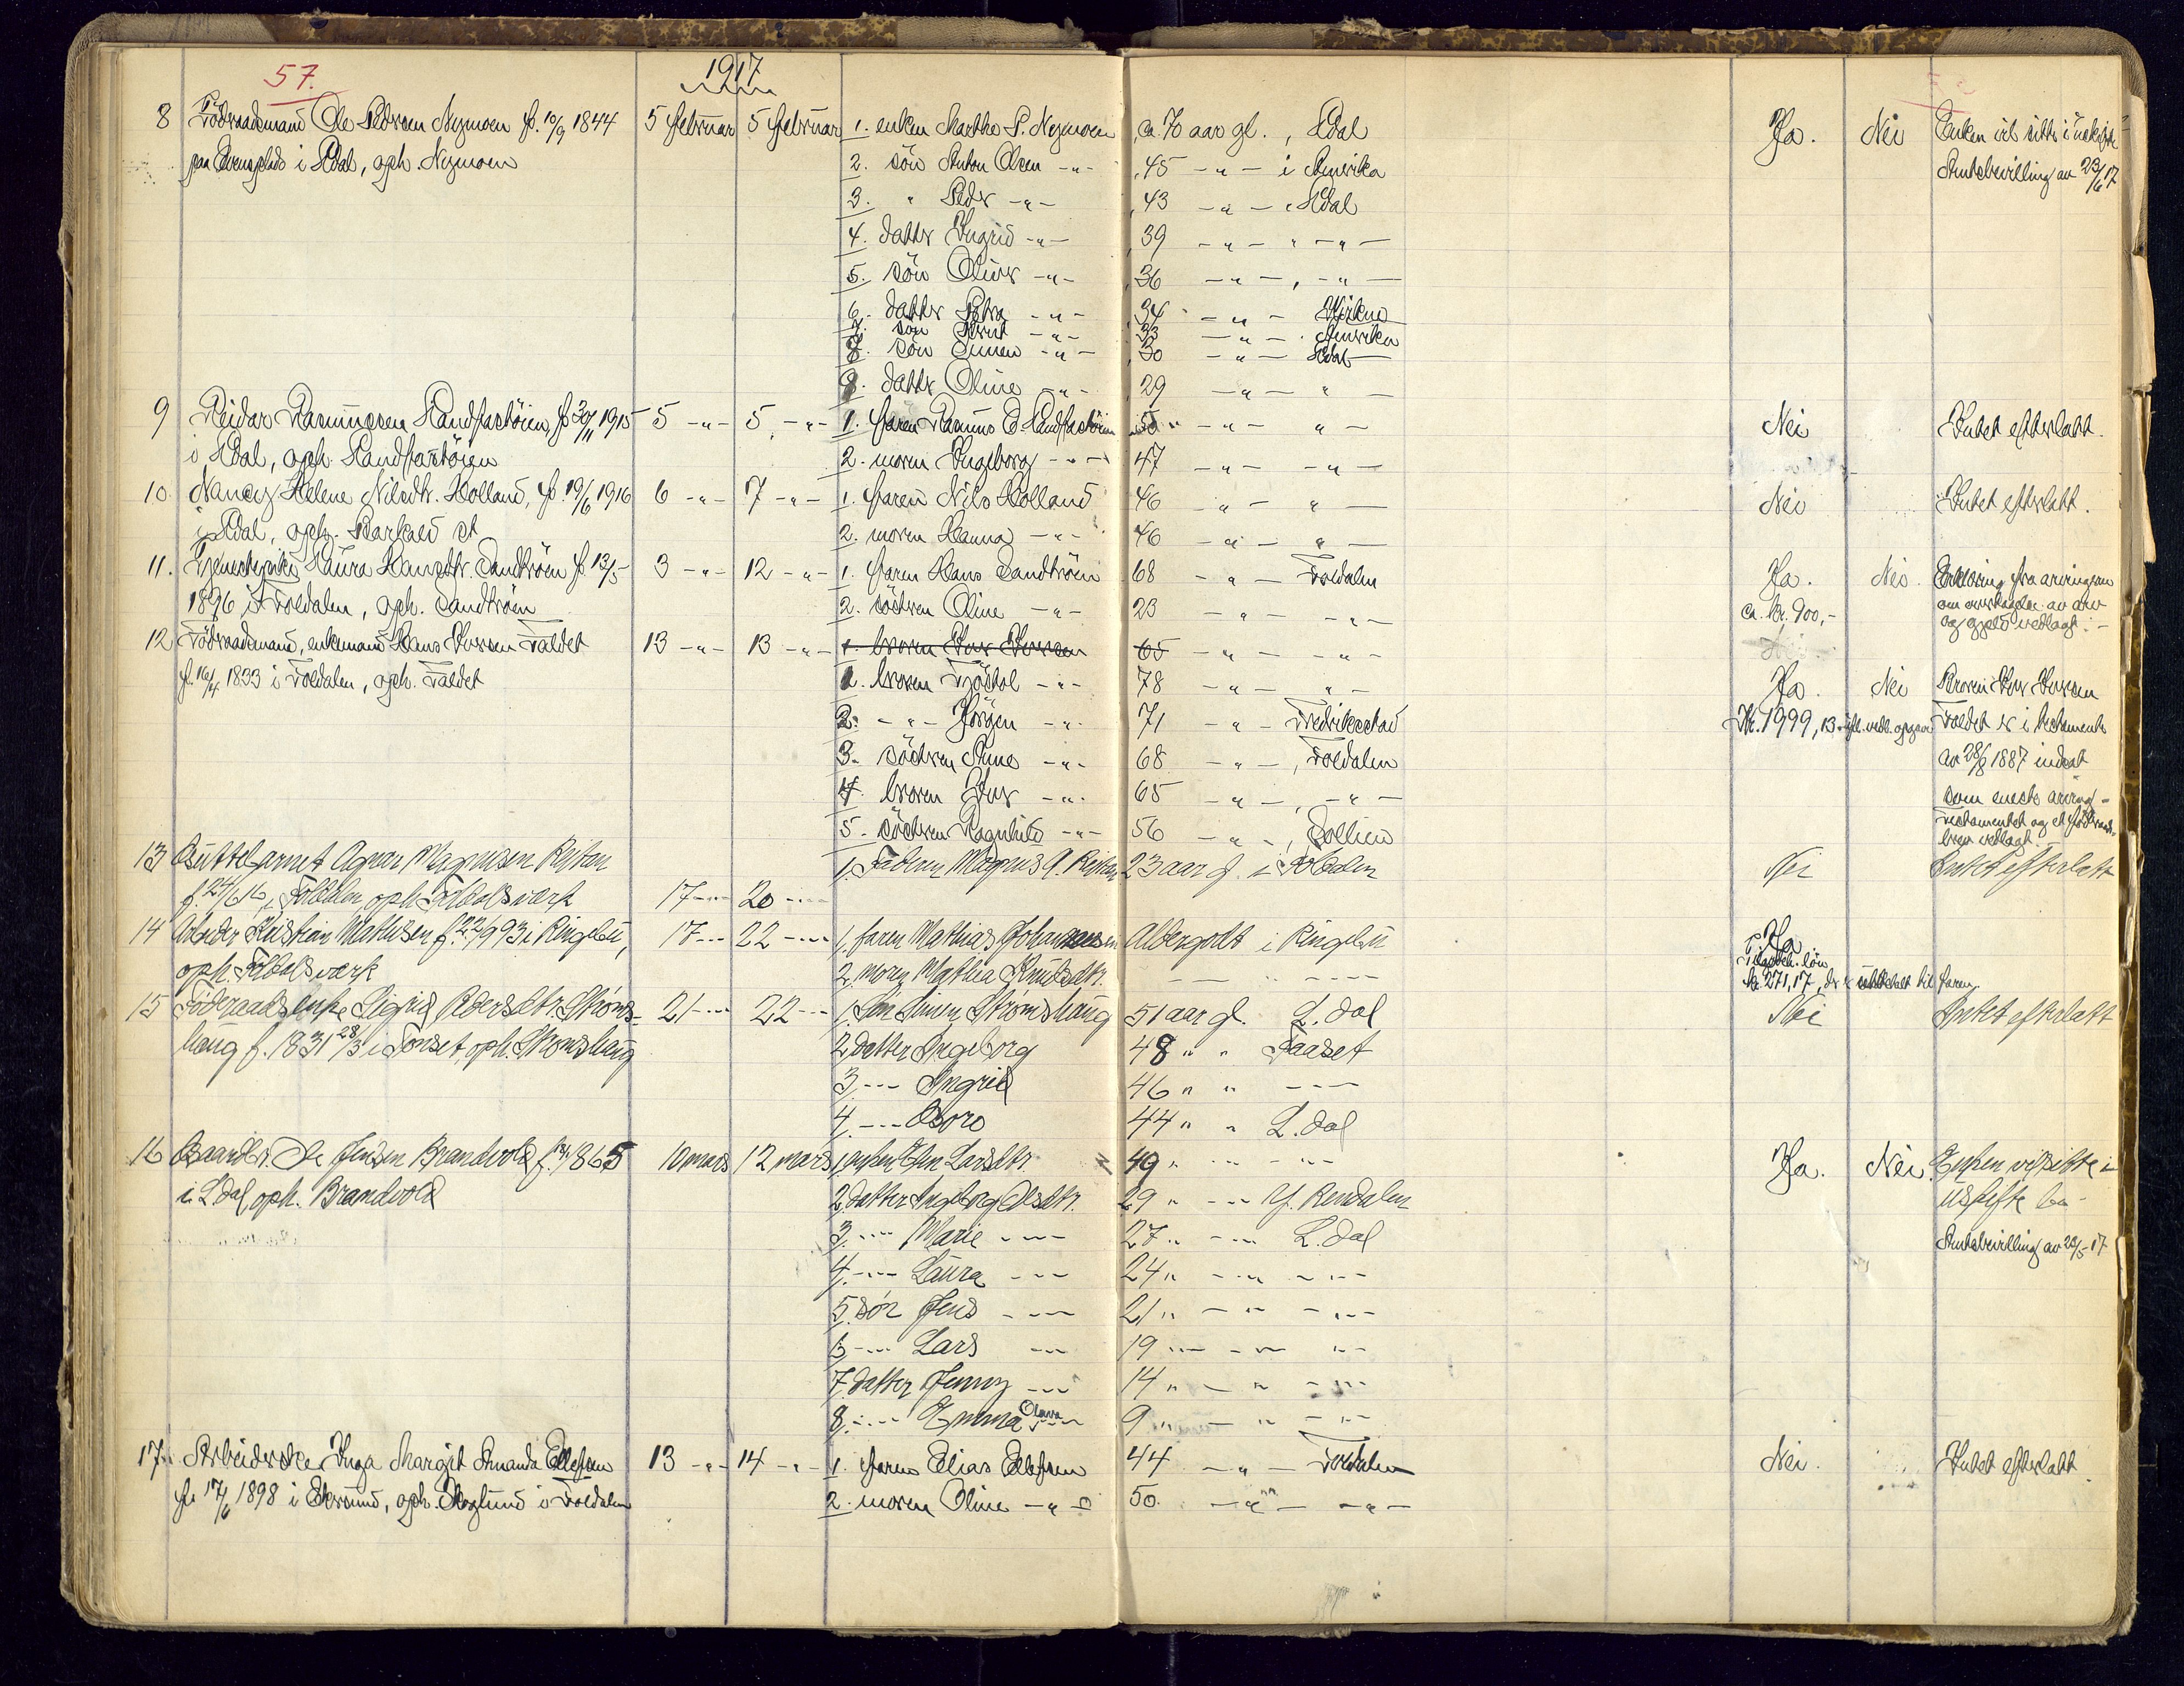 57. 1917
8 Föderaadsmand Ole Pedersen Nymoen f. 10/9 1844 5 februar 5 februar 1. enken Marthe P. Nymoen ca. 70 aar gl., Ldal Ja. Nei Enken vil sitte i uskifte
paa Evensplads i Ldal, oph. Nymoen 2. sön Anton Olsen -"- 45 -"- i Amerika Amtsbevilling av 23/6 17
3. " Peder -"- 43 -"- Ldal
4. datter Ingrid -"- 39 -"- " -"-
5. sön Oliver -"- 36 -"- , -"-
6. datter Petra -"- 34 -"-
7. sön -"- 33 -"- Amerika
8. sön Simen -"- 30 -"- Ldal
9. datter Oline -"- 29 -"- "
9 Reidar Rasmussen Sandfastöien, f. 30/11 1915 5 -"- 5 -"- 1. faren Rasmus E. Sandfastöien 50 " -"- " Nei Intet efterlatt.
i Ldal, oph. Sandfastöien 2. moren Ingeborg -"- 47 -"- -"-
10. Nancy Helene Nilsdtr. Holland, f. 19/6 1916 6 -"- 7 -"- 1. faren Nils Holland 46 -"- " Nei Intet efterlatt.
i Ldal, oph. 2. moren Hanna -"- 46 -"- "
11. Tjenestepike Laura Hansdtr. Sandtröen f. 13/5 3 -"- 12 -"- 1. faren Hans Sandtröen 68 -"- Foldalen Ja. Nei. Erklæring fra arvingene
1896 i Foldalen, oph. Sandtröen 2. söstren Oline -"- 23 -"- -"- ca. kr. 900,- om overtagelse av arv
og gjeld vedlagt.-
12 Föderaadsmand, enkemand Hans Iversen Faldet 13 -"- 13 -"- 1. broren Iver Iversen 65 -"- -"-
f. 16/4 1833 i Foldalen, oph. Faldet 1. broren -"- 78 -"- " Ja. Nei Broren Iver Iversen
2. -"- Jörgen -"- 71 -"- Fredrikstad Kr. 1999,13 ifl. vedl. opgave Foldet er i testamente
3. söstren Anne -"- 68 -"- , Foldalen av 28/8 1887 indsat
4. broren Iver -"- 65 -"- , -"- som eneste arving -
5. söstren Ragnhild -"- 56 -"- , Sollien Testamentet og et
brev vedlagt.
13 Agnar Magnusen Reitan 1. Faderen Magnus A. Reitan 23 aar gl. i Foldalen Nei Intet efterlatt
f. 24/6 16 i Foldalen, oph. Foldals verk 17 -"- 20 -"-
14 Arbeider Kristian Mathisen f. 22/9 93 i Ringebu, 17 -"- 22 -"- 1. faren Mathias Johannesen Aldersgodt i Ringebu Ja
oph. Foldals verk 2. moren Mathea Knutsdtr. -"- Tilgodeh. lön
kr. 271,17, der er utbetalt til faren.
15 Föderaadsenke Sigrid Pedersdtr. Ströms- 21 -"- 22 -"- 1. Sön Simen Strömshaug 51 aar gl. L.dal Nei Intet efterlatt
haug f. 1831 28/3 i Tönset, oph. Strömshaug 2 datter Ingeborg 48 " " Faaset
3 -"- Ingrid 46 " " -"-
4 -"- 44 " " L.dal
16 Gaardbr. Ole Jensen Brandvold f. 1865 10 mars 12 mars 1 enken Larsdtr. 49 " -"- -"- Ja. Nei. Enken vil sitte i
i L.dal, oph. Brandvold 2 datter Ingeborg Olsdtr. 29 " -"- Y. Rendalen uskifte bo-
3 -"- Marie -"- 27 " -"- L.dal Amtsbevilling av 23/5-17
4 -"- Laura -"- 24 " -"- -"-
5 sön Jens -"- 21 " -"- -"-
6 -"- Lars -"- 19 " -"- -"-
7 datter Jenny -"- 14 " -"- -"-
8 -"- Emma Olava -"- 9 " -"- -"-
17. Arbeiderske Inga Margit Amanda Ellefsen 13 -"- 14 -"- 1. faren Elias Ellefsen 44 -"- Foldalen Nei. Intet efterlatt.
f. 17/6 1898 i Ekersund, oph. Skoglund i Foldalen 2. moren Oline -"- 50 -"- -"-